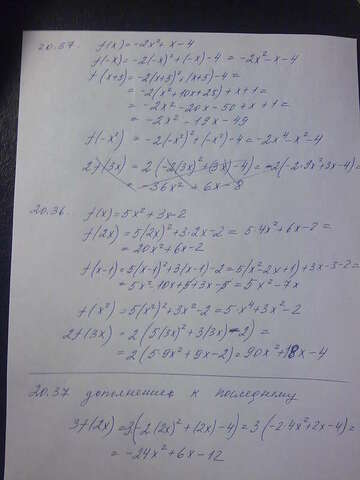 20.37. f(x)=-2x²+x-4
f(-x)=-2(-x)²+(-x)-4=-2x²-x-4
f(x+5)=-2(x+5)²+(x+5)-4=
=-2(x²+10x+25)+x+1=
=-2x²-20x-50+x+1=
=-2x²-19x-49
f(-x²)=-2(-x²)²+(-x²)-4=-2x⁴-x²-4
2f(3x)=2(-2(3x)²+(3x)-4)=2(-2·9x²+3x-4)=
=-36x²+6x-8
20.36. f(x)=5x²+3x-2
f(2x)=5(2x)²+3·2x-2=5·4x²+6x-2=
=20x²+6x-2
f(x-1)=5(x-1)²+3(x-1)-2=5(x²-2x+1)+3x-3-2=
=5x²-10x+5+3x-5=5x²-7x
f(x²)=5(x²)²+3x²-2=5·x⁴+3x²-2
2f(3x)=2(5(3x)²+3(3x)-2)=
=2(5·9x²+9x-2)=90x²+18x-4
20.37 дополнение к последнему
3f(2x)=3(-2(2x)²+(2x)-4)=3(-2·4x²+2x-4)=
=-24x²+6x-12